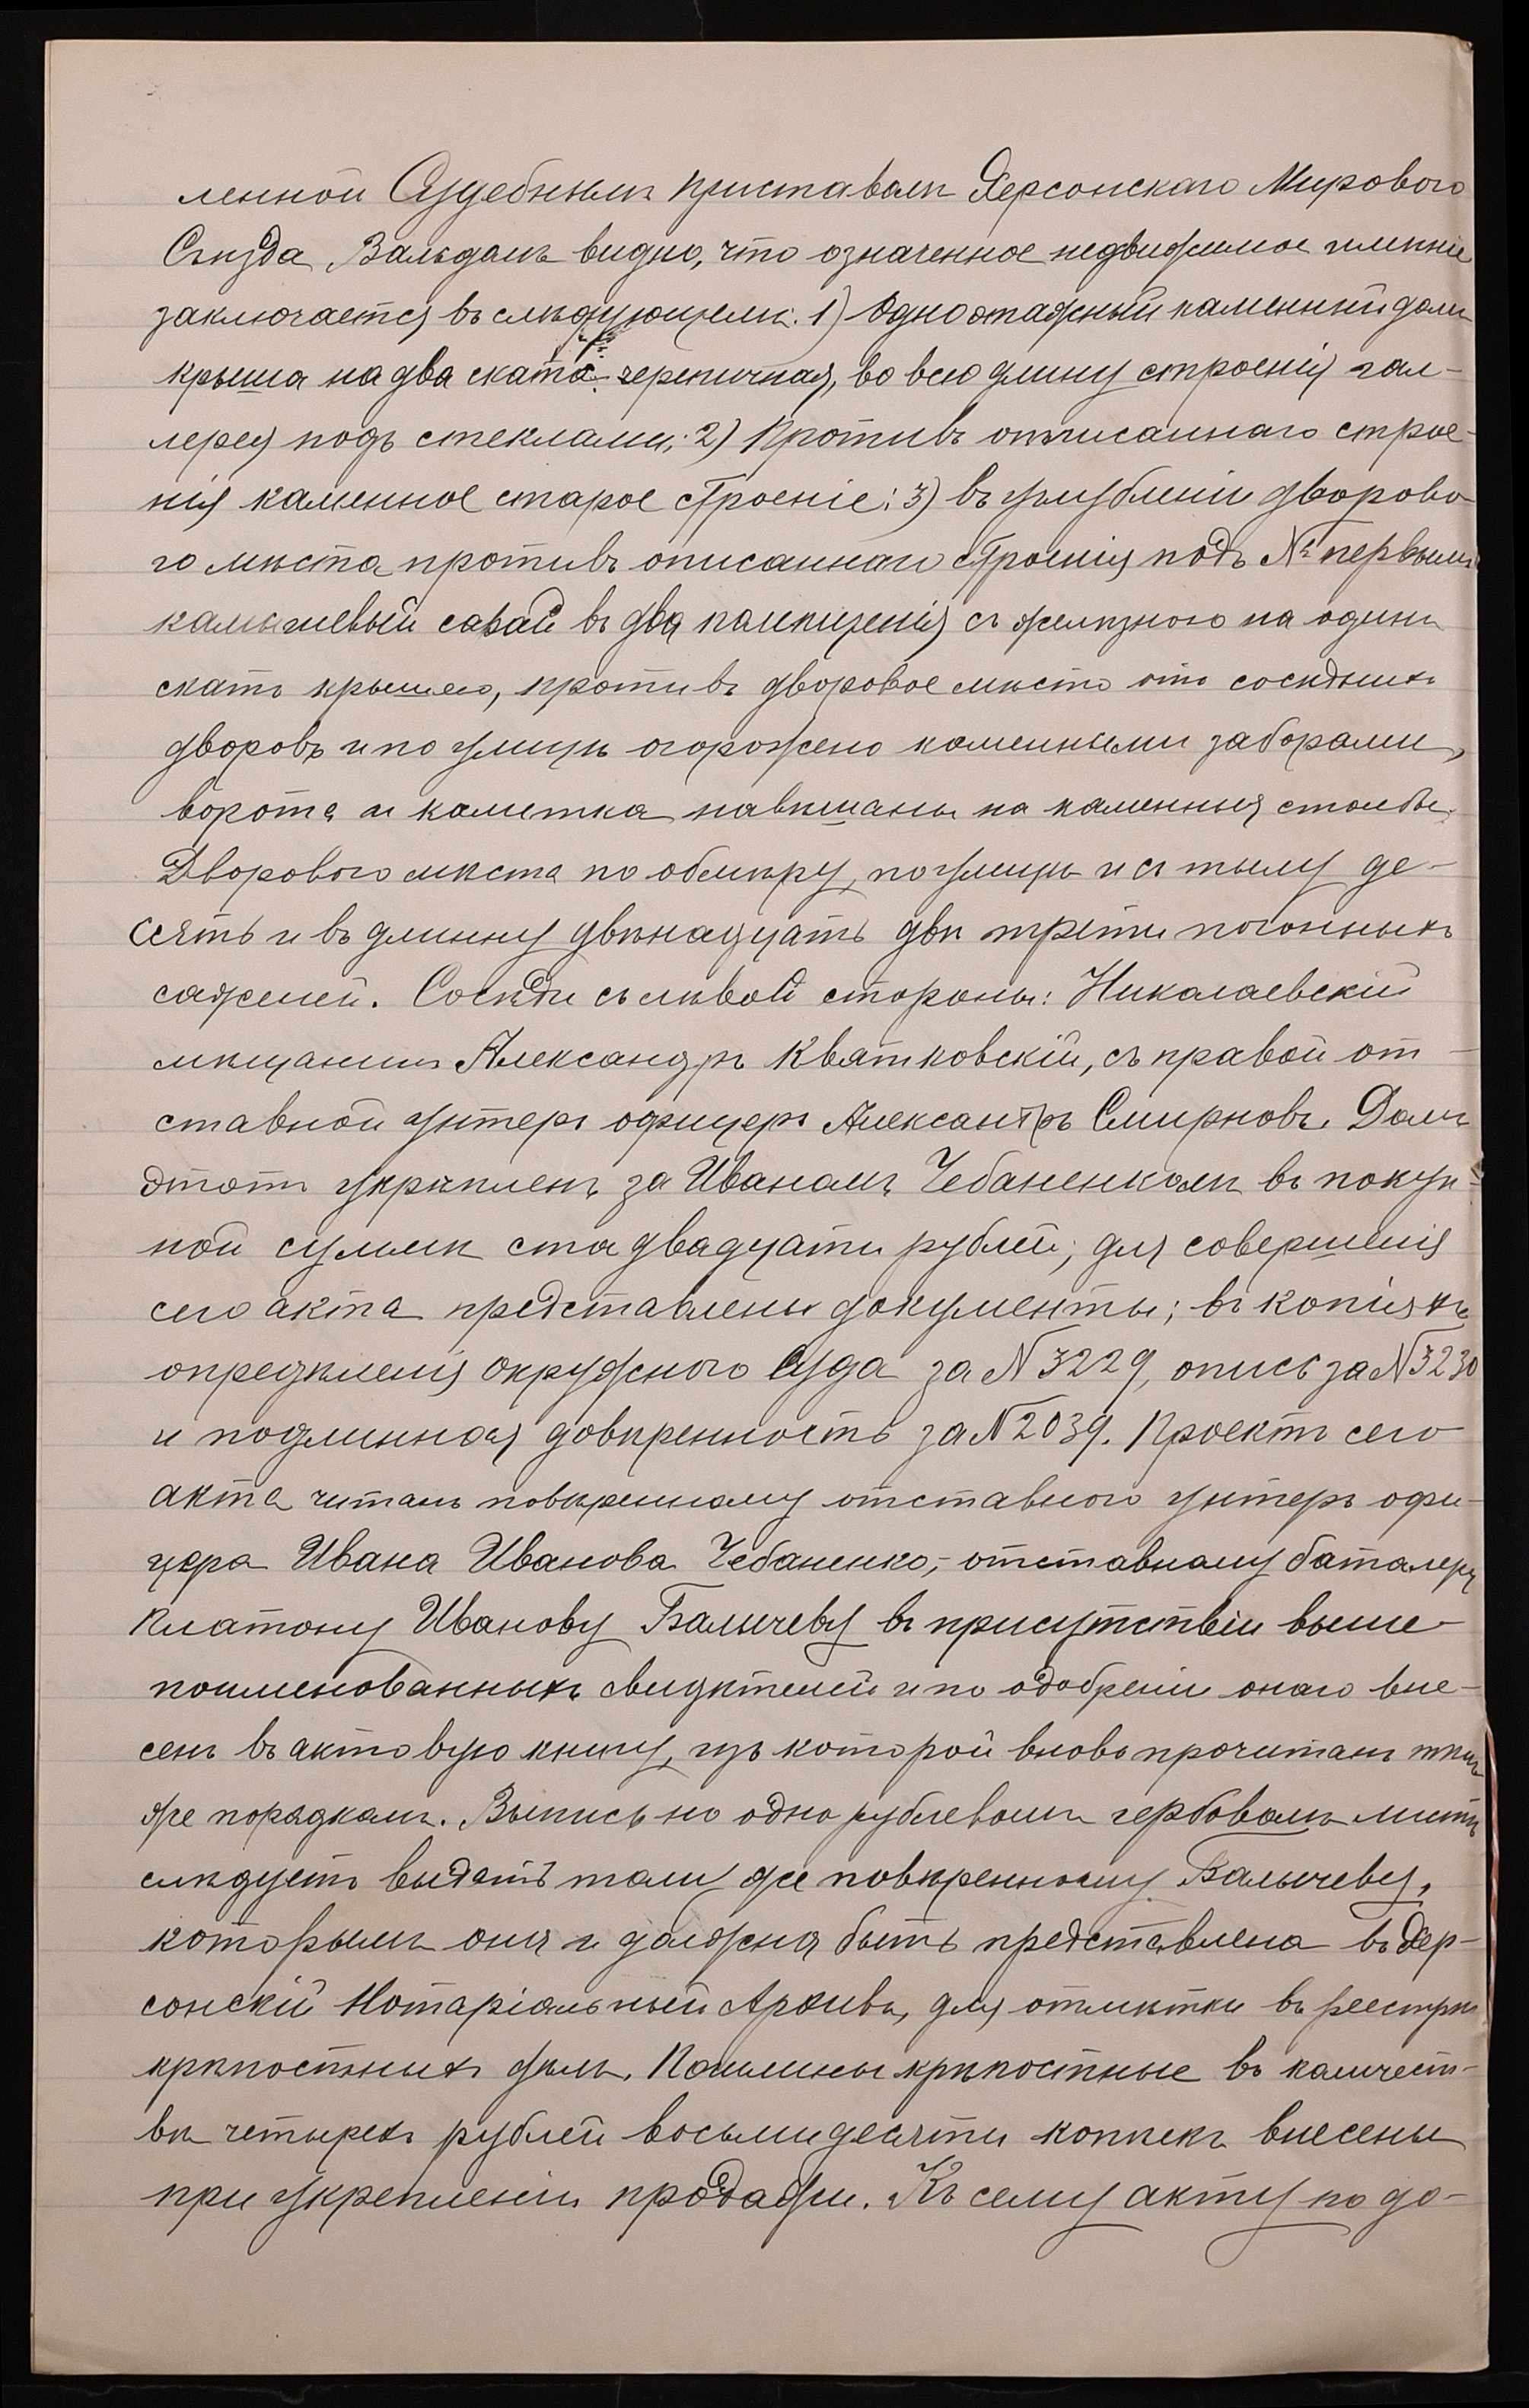 ленной Судебнымъ приставомъ Херсонскаго Мирового
Съѣзда Вальдомъ видно, что означенное недвижимое имѣніе
заключается въ слѣдующемъ: 1) Одноэтажный каменный домъ
крыша на два ската черепичная, во всю длину строенія гал-
лерея подъ стеклами; 2) Противъ описаннаго строе-
нія каменное старое строеніе; 3) въ углубленіи дворово-
го мѣста противъ описаннаго строенія подъ № первымъ
камышевый сарай въ два помѣщенія съ желѣзною на одинъ
скатъ крышею, противъ дворовое мѣсто отъ сосѣднихъ
дворовъ и по улицѣ огорожено каменными заборами,
ворота и калитка навѣшаны на каменныя столбы.
Дворового мѣста по обмѣру, по улицѣ и съ тылу де-
сять и въ длинну двѣнадцать двѣ трети погонныхъ
саженей. Сосѣди съ лѣвой стороны: Николаевскій
мѣщанинъ Александръ Квятковскій, съ правой от-
ставной унтеръ офицеръ Александръ Смирновъ. Домъ
этотъ укрѣпленъ за Иваномъ Чебаненкомъ въ покуп-
ной суммѣ ста двадцати рублей; для совершенія
сего акта представлены документы; въ копіяхъ
опредѣленія окружного Суда за N 3229, опись за N 3230
и подлинная довѣренность за N 2039. Проектъ сего
акта читанъ повѣренному отставного унтеръ офи-
цера Ивана Иванова Чебаненко, отставному баталеру
Платону Иванову Балычеву въ присутствіи выше-
поименованныхъ свидѣтелей и по одобреніи онаго вне-
сенъ въ актовую книгу, изъ которой вновь прочитанъ тѣмъ
же порядкомъ. Выпись на однорублевомъ гербовомъ листѣ
слѣдуетъ выдать тому же повѣренному Балычеву,
которымъ она и должна быть представлена въ Хер-
сонскій Нотаріальный Архивъ, для отмѣтки въ реестрѣ
крѣпостныхъ дѣлъ. Пошлины крѣпостные въ количест-
вѣ четырехъ рублей восьмидесяти копѣекъ внесены
при укрепленіи продажи. Къ сему акту по до-